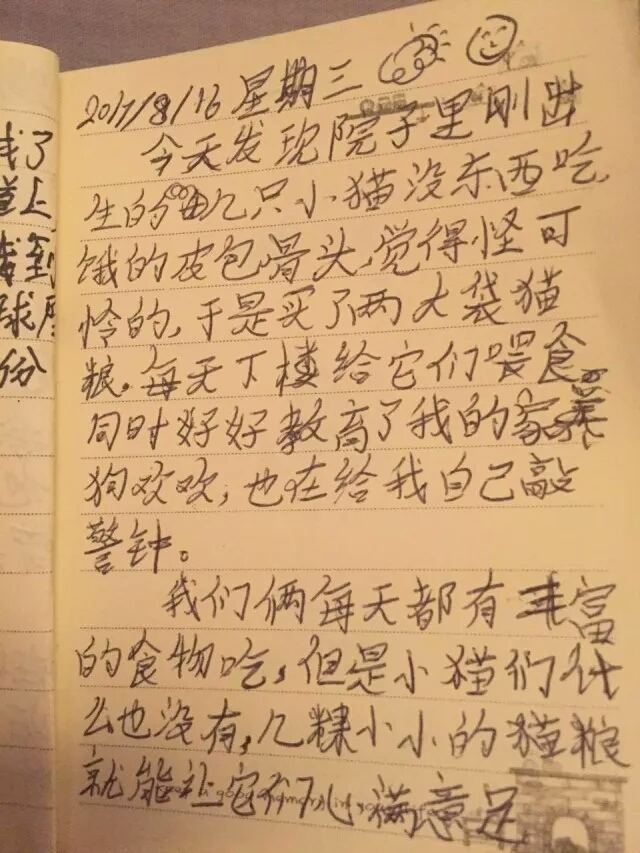 我了
道上
到
球
份
2017/8/16 星期三
今天发现院子里刚出
生的几只小猫没东西吃,
饿的皮包骨头,觉得怪可
怜的,于是买了两大袋猫
粮。每天下楼给它们喂食。
同时好好教育了我的家养
狗欢欢,也在给我自己敲
警钟。
我们俩每天都有丰富
的食物吃,但是小猫们什
么也没有,几粿小小的猫粮
就能让它们心满意足